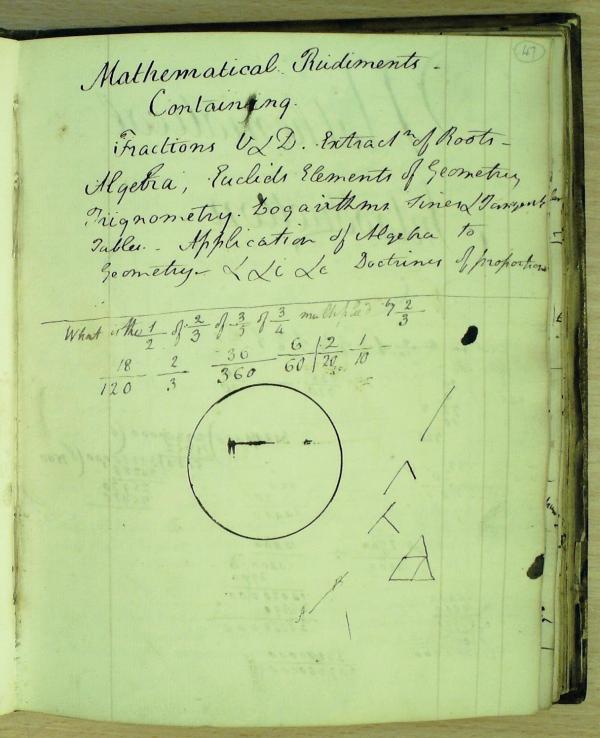 47
Mathematical Rudiments -
Containing.
Fractions V & D. Extractn of Roots -
Algebra, Euclids Elements of Geometry
Trignometry. Logarithms Sines & Tangents
Tables - Application of Algebra to
Geometry - &c &c Doctrines of proportion
What is the 1/2 of 2/3 of 3/5 of 3/4 multiplied by 2/3
18/120 2/3 36/360 6/60 2/20 1/10